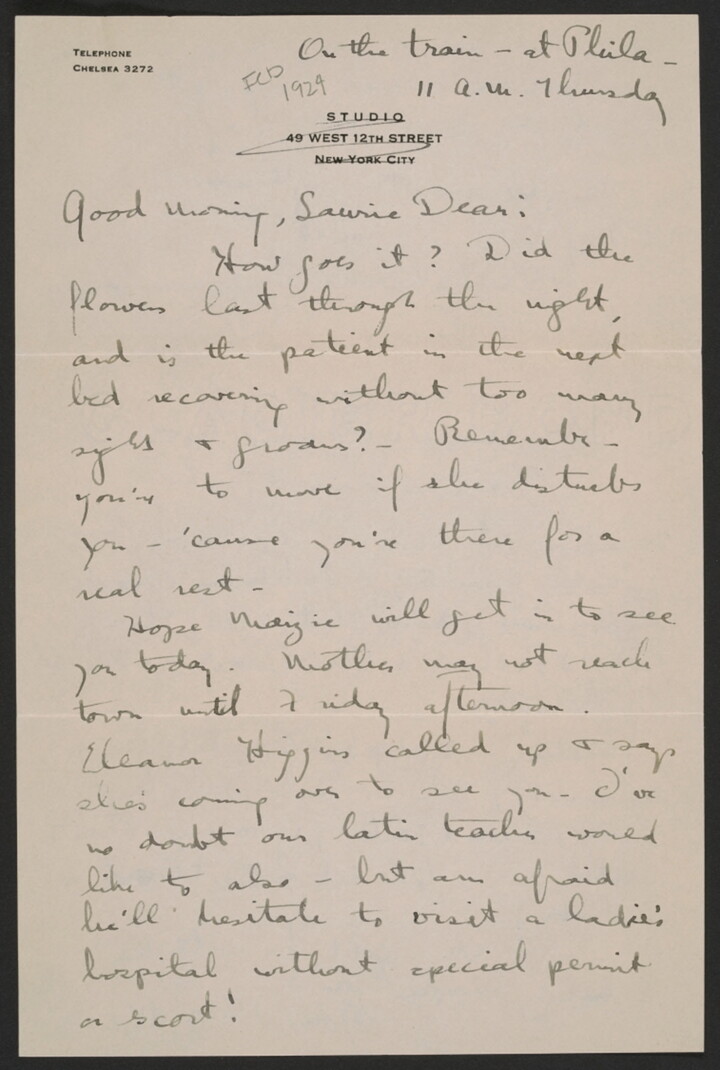 TELEPHONE
CHELSEA 3272
On the train – at Phila –
FEB
1924
11 A.M. Thursday
STUDIO
49 WEST 12TH STREET
NEW YORK CITY
Good Morning, Laurie Dear:
How goes it? Did the
flowers last through the night,
and is the patient in the next
bed recovering without too many
sighs & groans? – Remember –
you're to move if she disturbs
you – 'cause you're there for a
real rest –
Hope Maizie will get in to see
you today. Mother may not reach
town until Friday afternoon.
Eleanor Higgins called up & says
she's coming over to see you – I've
no doubt our latin teacher would
like to also – but am afraid
he'll hesitate to visit a ladie's
hospital without special permit
or scort!